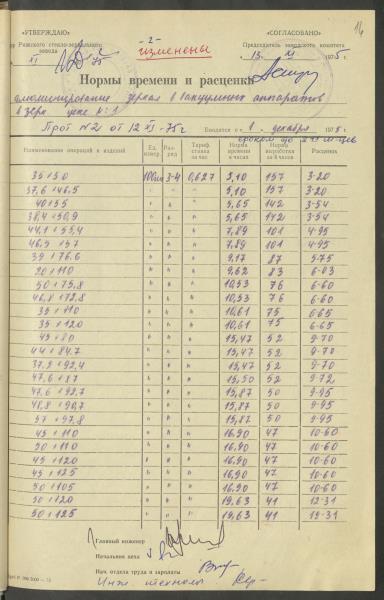 14
«УТВЕРЖДАЮ»
-2-
«СОГЛАСОВАНО»
Рижского стекло-зеркального
завода
изменены
Председатель заводского комитета
XI 75
13. XI 1975 г
Нормы времени и расценки
алюминирование зеркал в вакуумных аппаратов
в зерк. цехе №1
Прот №21 от 12 XI-75г Вводится с « 1 декабря 1975 г
сроком до
Наименование операций и изделий Ед. измер. Разряд Тариф. ставка за час Норма времени в часах Норма выработки за 8 часов Расценок
35×50 100шт 3-4 0,627 5,10 157 3-20
37,6×46,5 " " 5,10 157 3-20
40×55 " " 5,65 142 3-54
38,4×50,9 " " 5,65 142 3-54
44,1×55,4 " " 7,89 101 4-95
46,5×57 " " 7,89 101 4-95
39×76,6 " " 9,17 87 5-75
20×110 " " 9,62 83 6-03
50×75,8 " " 10,53 76 6-60
46,8×78,8 " " 10,53 76 6-60
35×110 " " 10,61 75 6-65
35×120 " " 10,61 75 6-65
45×80 " " 15,47 52 9-70
44×84,7 " " 15,47 52 9-70
37,5×92,4 " " 15,47 52 9-70
47,6×87 " " 15,50 52 9-72
47,6×92,7 " " 15,87 50 9-95
48,8×90,7 " " 15,87 50 9-95
57×97,8 " " 15,87 50 9-95
45×110 " " 16,90 47 10-60
50×110 " " 16,90 47 10-60
45×120 " " 16,90 47 10-60
45×125 " " 16,90 47 10-60
50×105 " " 16,90 47 10-60
50×120 " " 19,63 41 12-31
50×125 " " 19,63 41 12-31
Главный инженер
Начальник цеха
Нач. отдела труда и зарплаты
Инж. технолог